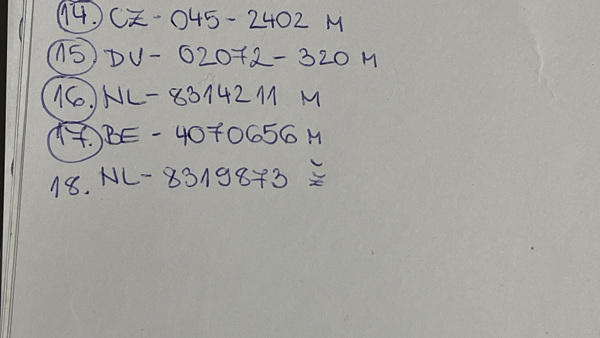 14. CZ - 045 - 2402 M
15 DV - 02072 - 320 M
16. NL - 8314211 M
17. BE - 4070656 M
18. NL - 8319873 Ž